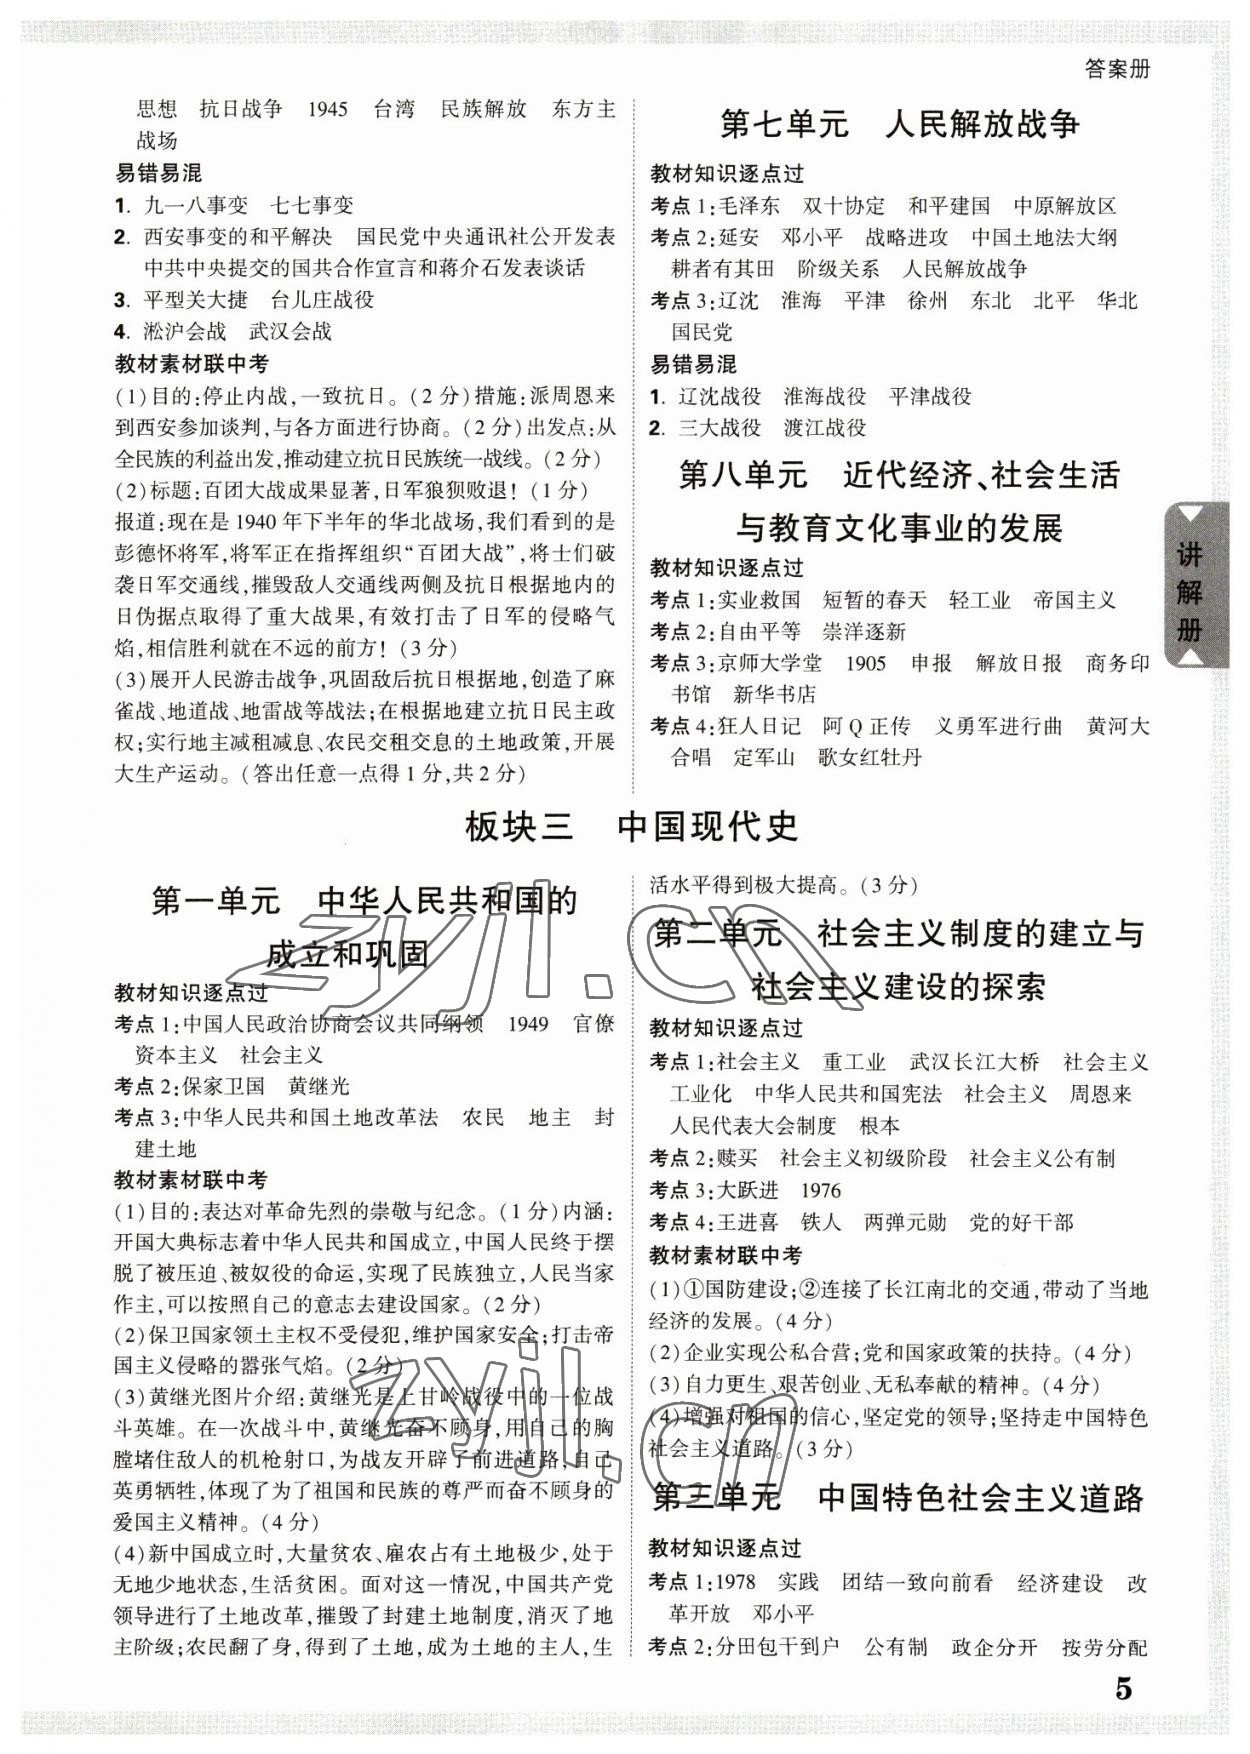 答案册
思想 抗日战争 1945 台湾 民族解放 东方主
战场
易错易混
1. 九一八事变 七七事变
2. 西安事变的和平解决 国民党中央通讯社公开发表
中共中央提交的国共合作宣言和蒋介石发表谈话
3. 平型关大捷 台儿庄战役
4. 淞沪会战 武汉会战
教材素材联中考
(1)目的:停止内战,一致抗日。(2分)措施:派周恩来
到西安参加谈判,与各方面进行协商。(2分)出发点:从
全民族的利益出发,推动建立抗日民族统一战线。(2分)
(2)标题:百团大战成果显著,日军狼狈败退!(1分)
报道:现在是1940年下半年的华北战场,我们看到的是
彭德怀将军,将军正在指挥组织“百团大战”,将士们破
袭日军交通线,摧毁敌人交通线两侧及抗日根据地内的
日伪据点取得了重大战果,有效打击了日军的侵略气
焰,相信胜利就在不远的前方!(3分)
(3)展开人民游击战争,巩固敌后抗日根据地,创造了麻
雀战、地道战、地雷战等战法;在根据地建立抗日民主政
权;实行地主减租减息、农民交租交息的土地政策,开展
大生产运动。(答出任意一点得1分,共2分)
第七单元 人民解放战争
教材知识逐点过
考点1:毛泽东 双十协定 和平建国 中原解放区
考点2:延安 邓小平 战略进攻 中国土地法大纲
耕者有其田 阶级关系 人民解放战争
考点3:辽沈 淮海 平津 徐州 东北 北平 华北
国民党
易错易混
1. 辽沈战役 淮海战役 平津战役
2. 三大战役 渡江战役
第八单元 近代经济、社会生活
与教育文化事业的发展
教材知识逐点过
考点1:实业救国 短暂的春天 轻工业 帝国主义
考点2:自由平等 崇洋逐新
考点3:京师大学堂 1905 申报 解放日报 商务印
书馆 新华书店
考点4:狂人日记 阿Q正传 义勇军进行曲 黄河大
合唱 定军山 歌女红牡丹
讲解册
板块三 中国现代史
第一单元 中华人民共和国的
成立和巩固
教材知识逐点过
考点1:中国人民政治协商会议共同纲领 1949 官僚
资本主义 社会主义
考点2:保家卫国 黄继光
考点3:中华人民共和国土地改革法 农民 地主 封
建土地
教材素材联中考
(1)目的:表达对革命先烈的崇敬与纪念。(1分)内涵:
开国大典标志着中华人民共和国成立,中国人民终于摆
脱了被压迫、被奴役的命运,实现了民族独立,人民当家
作主,可以按照自己的意志去建设国家。(2分)
(2)保卫国家领土主权不受侵犯,维护国家安全;打击帝
国主义侵略的嚣张气焰。(2分)
(3)黄继光图片介绍:黄继光是上甘岭战役中的一位战
斗英雄。在一次战斗中,黄继光奋不顾身,用自己的胸
膛堵住敌人的机枪射口,为战友开辟了前进道路,自己
英勇牺牲,体现了为了祖国和民族的尊严而奋不顾身的
爱国主义精神。(4分)
(4)新中国成立时,大量贫农、雇农占有土地极少,处于
无地少地状态,生活贫困。面对这一情况,中国共产党
领导进行了土地改革,摧毁了封建土地制度,消灭了地
主阶级;农民翻了身,得到了土地,成为土地的主人,生
活水平得到极大提高。(3分)
第二单元 社会主义制度的建立与
社会主义建设的探索
教材知识逐点过
考点1:社会主义 重工业 武汉长江大桥 社会主义
工业化 中华人民共和国宪法 社会主义 周恩来
人民代表大会制度 根本
考点2:赎买 社会主义初级阶段 社会主义公有制
考点3:大跃进 1976
考点4:王进喜 铁人 两弹元勋 党的好干部
教材素材联中考
(1)①国防建设;②连接了长江南北的交通,带动了当地
经济的发展。(4分)
(2)企业实现公私合营;党和国家政策的扶持。(4分)
(3)自力更生、艰苦创业、无私奉献的精神。(4分)
(4)增强对祖国的信心,坚定党的领导;坚持走中国特色
社会主义道路。(3分)
第三单元 中国特色社会主义道路
教材知识逐点过
考点1:1978 实践 团结一致向前看 经济建设 改
革开放 邓小平
考点2:分田包干到户 公有制 政企分开 按劳分配
5
zyjl.cn
zyjl.cn